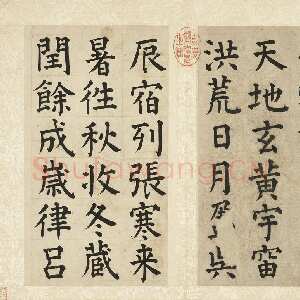 天地玄黃宇宙
洪荒日月
辰宿列張寒来
暑徃秋收冬藏
閏餘成歲律呂